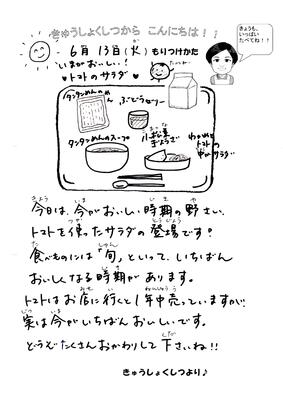 きゅうしょくしつから こんにちは！！
きょうも、
いっぱい
たべてね！！
6月13日(火) もりつけかた
いまがおいしい！
♥トマトのサラダ♥
タンタンめんのめん
ぶどうゼリー
タンタンめんのスープ
はねつき
ぎょうざ
わかめと
トマトの
中かサラダ
今日は、今がおいしい時期の野さい、
トマトを使ったサラダの登場です！
食べものには「旬」といって、いちばん
おいしくなる時期があります。
トマトはお店に行くと1年中売っていますが、
実は今がいちばんおいしいです。
どうぞたくさんおかわりして下さいね!!
きゅうしょくしつより♪